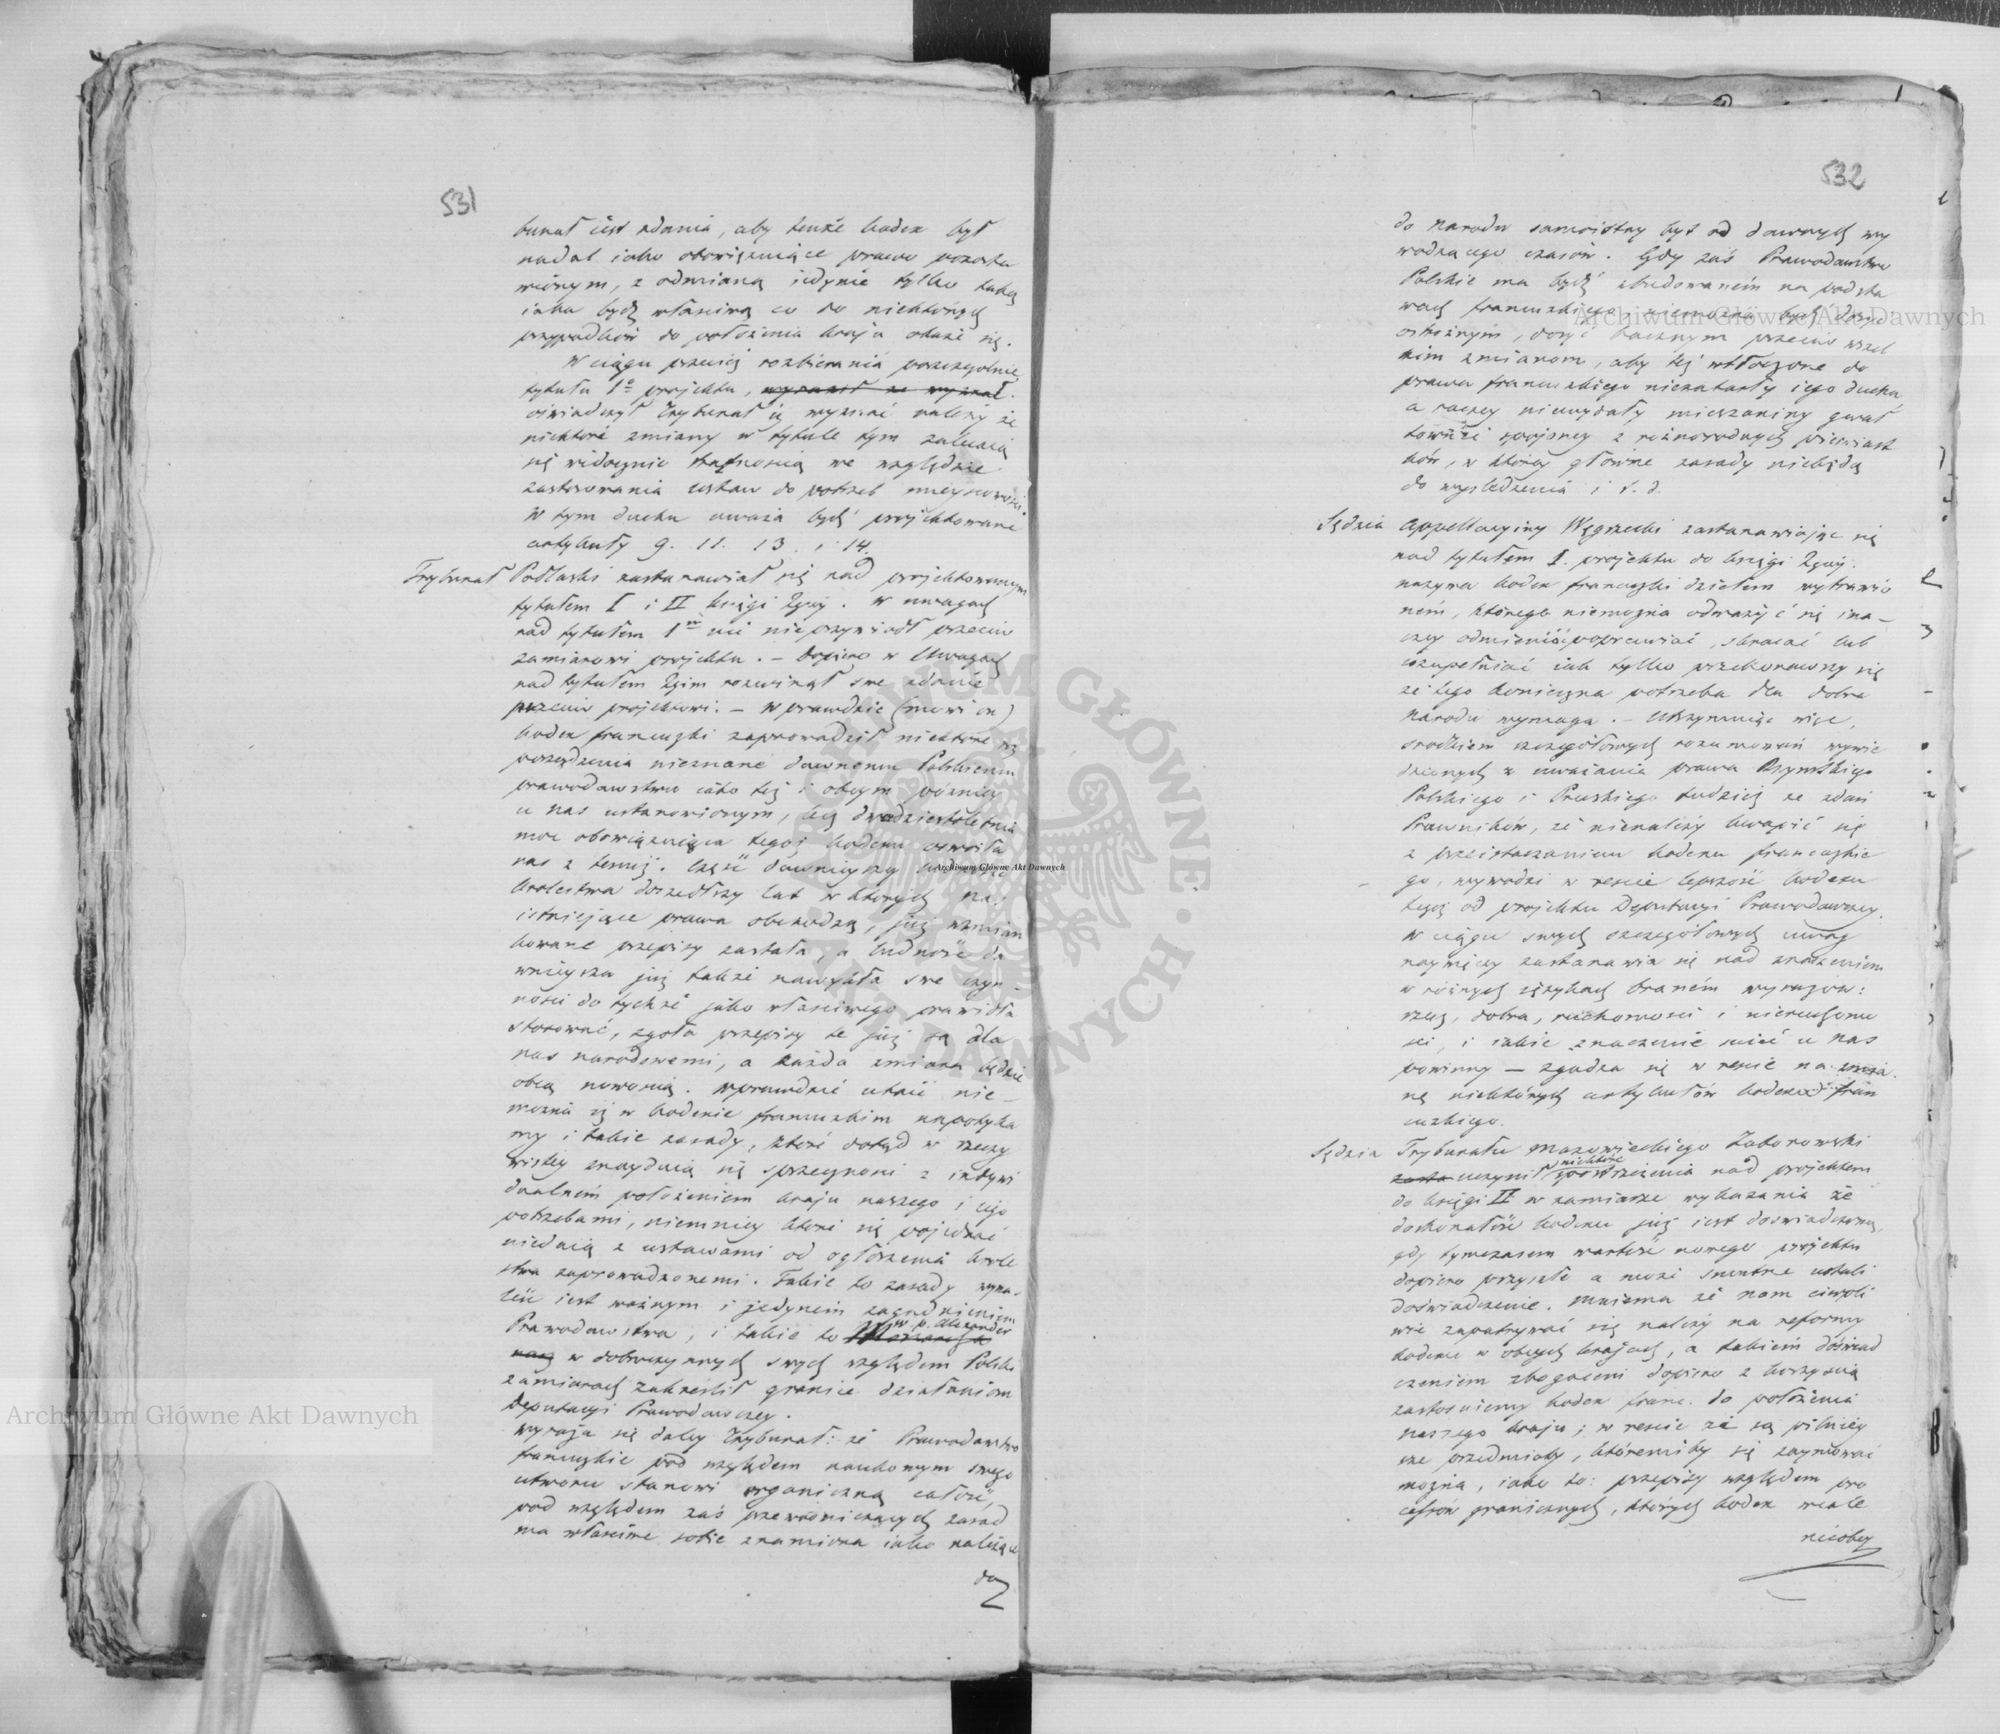 531
bunał iest zdania, aby tenże kodex był
nadal iako obowiązuiące prawo pozosta
wionym, z odmianą iedynie tylko taką
iaka bydź właściwą co do niektórych
przypadków do położenia kraju okaże się.
W ciągu przecież rozbierania poszczególnie
tytułu 1o projektu, wyraził że wyznał
oświadczył Trybunał iż wyznać należy że
niektóre zmiany w tytule tym zalecaią
się widocznie trafnością we względzie
zastosowania ustaw do potrzeb mieyscowości.
W tym duchu uważa bydź projektowane
artykuły 9. 11. 13. i 14.
Trybunał Podlaski zastanawiał się nad projektowanym
tytułem I i II księgi IIgiéj. W uwagach
nad tytułem 1m nic nieprzywiódł przeciw
zamiarowi projektu. – Dopiero w Uwagach
nad tytułem IIgim rozwinął swe zdanie
przeciw projektowi. – W prawdzie (mówi on)
kodex francuzki zaprowadził niektóre
urządzenia nieznane dawnemu Polskiemu
prawodawstwu iako też i obcym później
u nas ustanowionym, lecz dwudziestoletnia
moc obowiązuiąca tegoż kodexu oswoiła
nas z temiż. Część dawnieyszey ludności
Królestwa doszedłszy lat w których nas
istniejące prawa obchodzą, już wzmian
kowane przepisy zastała, a ludność da
wnieysza już także nawykła swe czyn
ności do tychże jako właściwego prawidła
stosować, zgoła przepisy te już są dla
nas narodowemi, a każda zmiana będzie
obcą nowością. Wprawdzie utaić nie
można iż w kodexie francuzkim napotyka
my i takie zasady, które dotąd w rzeczy
wistey znayduią się sprzeczności z indywi
dualném położeniem kraju naszego i jego
potrzebami, niemniey które się pojednać
niedaią z ustawami od ogłoszenia Króle
stwa zaprowadzonemi. Takie to zasady wyna
leść iest ważnym i jedyném zagadnieniem
Prawodawstwa, i takie to Monarcha
w. p. Alexander
nasz w dobroczynnych swych względem Polski
zamiarach zakreślił granice działaniom
Deputacyi Prawodawczey.
Wyraża się daley Trybunał: że Prawodawstwo
francuzkie pod względem naukowym swego
utworu stanowi organiczną całość,
pod względem zaś przewodniczących zasad
ma właściwe sobie znamiona iako należące
do
532
do Narodu samoistny byt od dawnych wy
wodzącego czasów. Gdy zaś Prawodawstwo
Polskie ma bydź zbudowaném na podsta
wach francuzkiego, niemożna bydź dosyć
ostrożnym, dosyć bacznym przeciw wszel
kim zmianom, aby tej wtłoczone do
prawa francuzkiego niezatarły iego ducha
a raczey niewydały mieszaniny gwał
townéi spojoney z różnorodnych pierwiast
ków, w którey główne zasady niebędą
do wyśledzenia i t. d.
Sędzia Appellacyiny Węgrzecki zastanawiając się
nad tytułem I. projektu do księgi IIgiéj.
nazywa kodex francuzki dziełem wytrawio
nem, którego niemożna odważyć się ina–
czey odmienić poprawiać, skracać lub
uzupełniać iak tylko przekonawszy się
że tego konieczna potrzeba dla dobra
Narodu wymaga. – Utrzymuiąc więc,
środkiem szczegółowych rozumowań wywie
dzionych z uważania prawa Rzymskiego
Polskiego i Pruskiego tudzież ze zdań
Prawników, że nienależy kwapić się
z przeistaczaniem kodexu francuzkie
go, wywodzi w reszcie lepszość kodexu
tegoż od projektu Deputacyi Prawodawczey.
W ciągu swych szczegółowych uwag
naywięcey zastanawia się nad znaczeniem
w różnych językach braném wyrazów:
rzecz, dobra, ruchomości i nieruchomo
ści, i iakie znaczenie mieć u nas
powinny – zgadza się w reszcie na zmia
nę niektórych artykułów kodexu fran
cuzkiego.
Sędzia Trybunału Mazowieckiego Zaborowski
zasta uczynił niektóre spostrzeżenia nad projektem
do księgi II w zamiarze wykazania że
doskonałość kodexu już iest doświadczoną,
gdy tymczasem wartość nowego projektu
dopiero przyszłe a może smutne ustali
doświadczenie. Mniema że nam cierpli
wie zapatrywać się należy na reformy
kodexu w obcych krajach, a takiém doświad
czeniem zbogaceni dopiero z korzyścią
zastosuiemy kodex franc. do położenia
naszego kraju; w reszcie że są pilniey
sze przedmioty, któremiby się zaymować
można, iako to: przepisy względem pro
cessów granicznych, których kodex wcale
nieobey